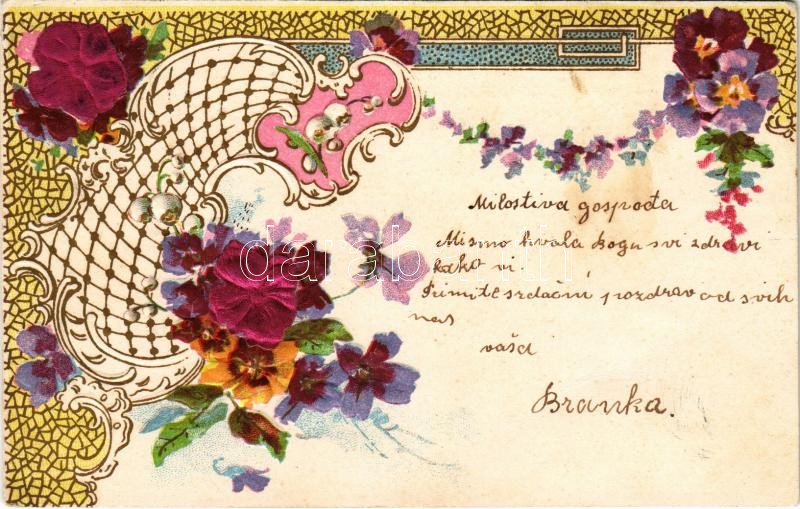 Milostiva gospođa
Mismo hvala Bogu svi zdravi
kako vi.
Primite srdačni pozdrav od svih
nas
vaša
Branka.
darabanth